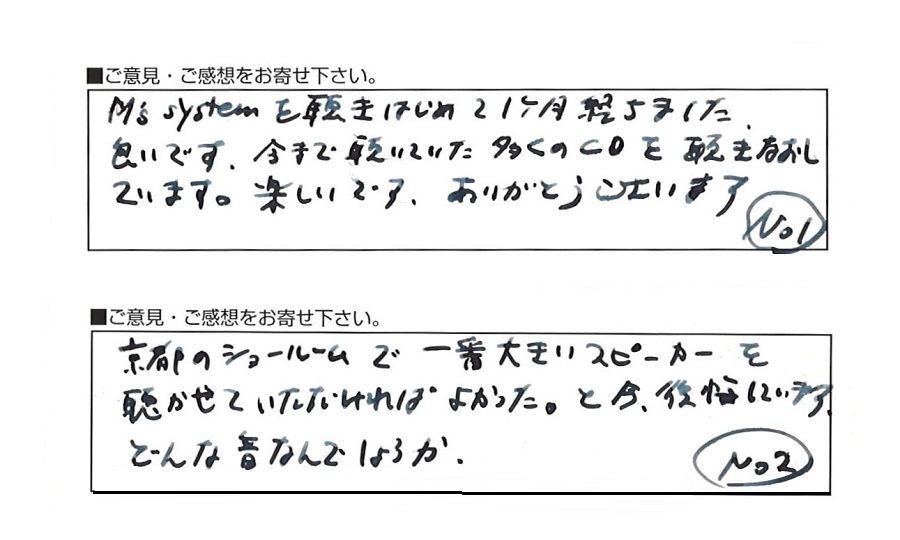 ■ご意見・ご感想をお寄せ下さい。
M's systemを聴きはじめて1ケ月経ちました、
良いです、今まで聴いていた多くのCDを聴きなおし
ています。楽しいです、ありがとうございます
No1
■ご意見・ご感想をお寄せ下さい。
京都のショールームで一番大きいスピーカーを
聴かせていただければよかった。と今、後悔しています、
どんな音なんでしょうか、
No2